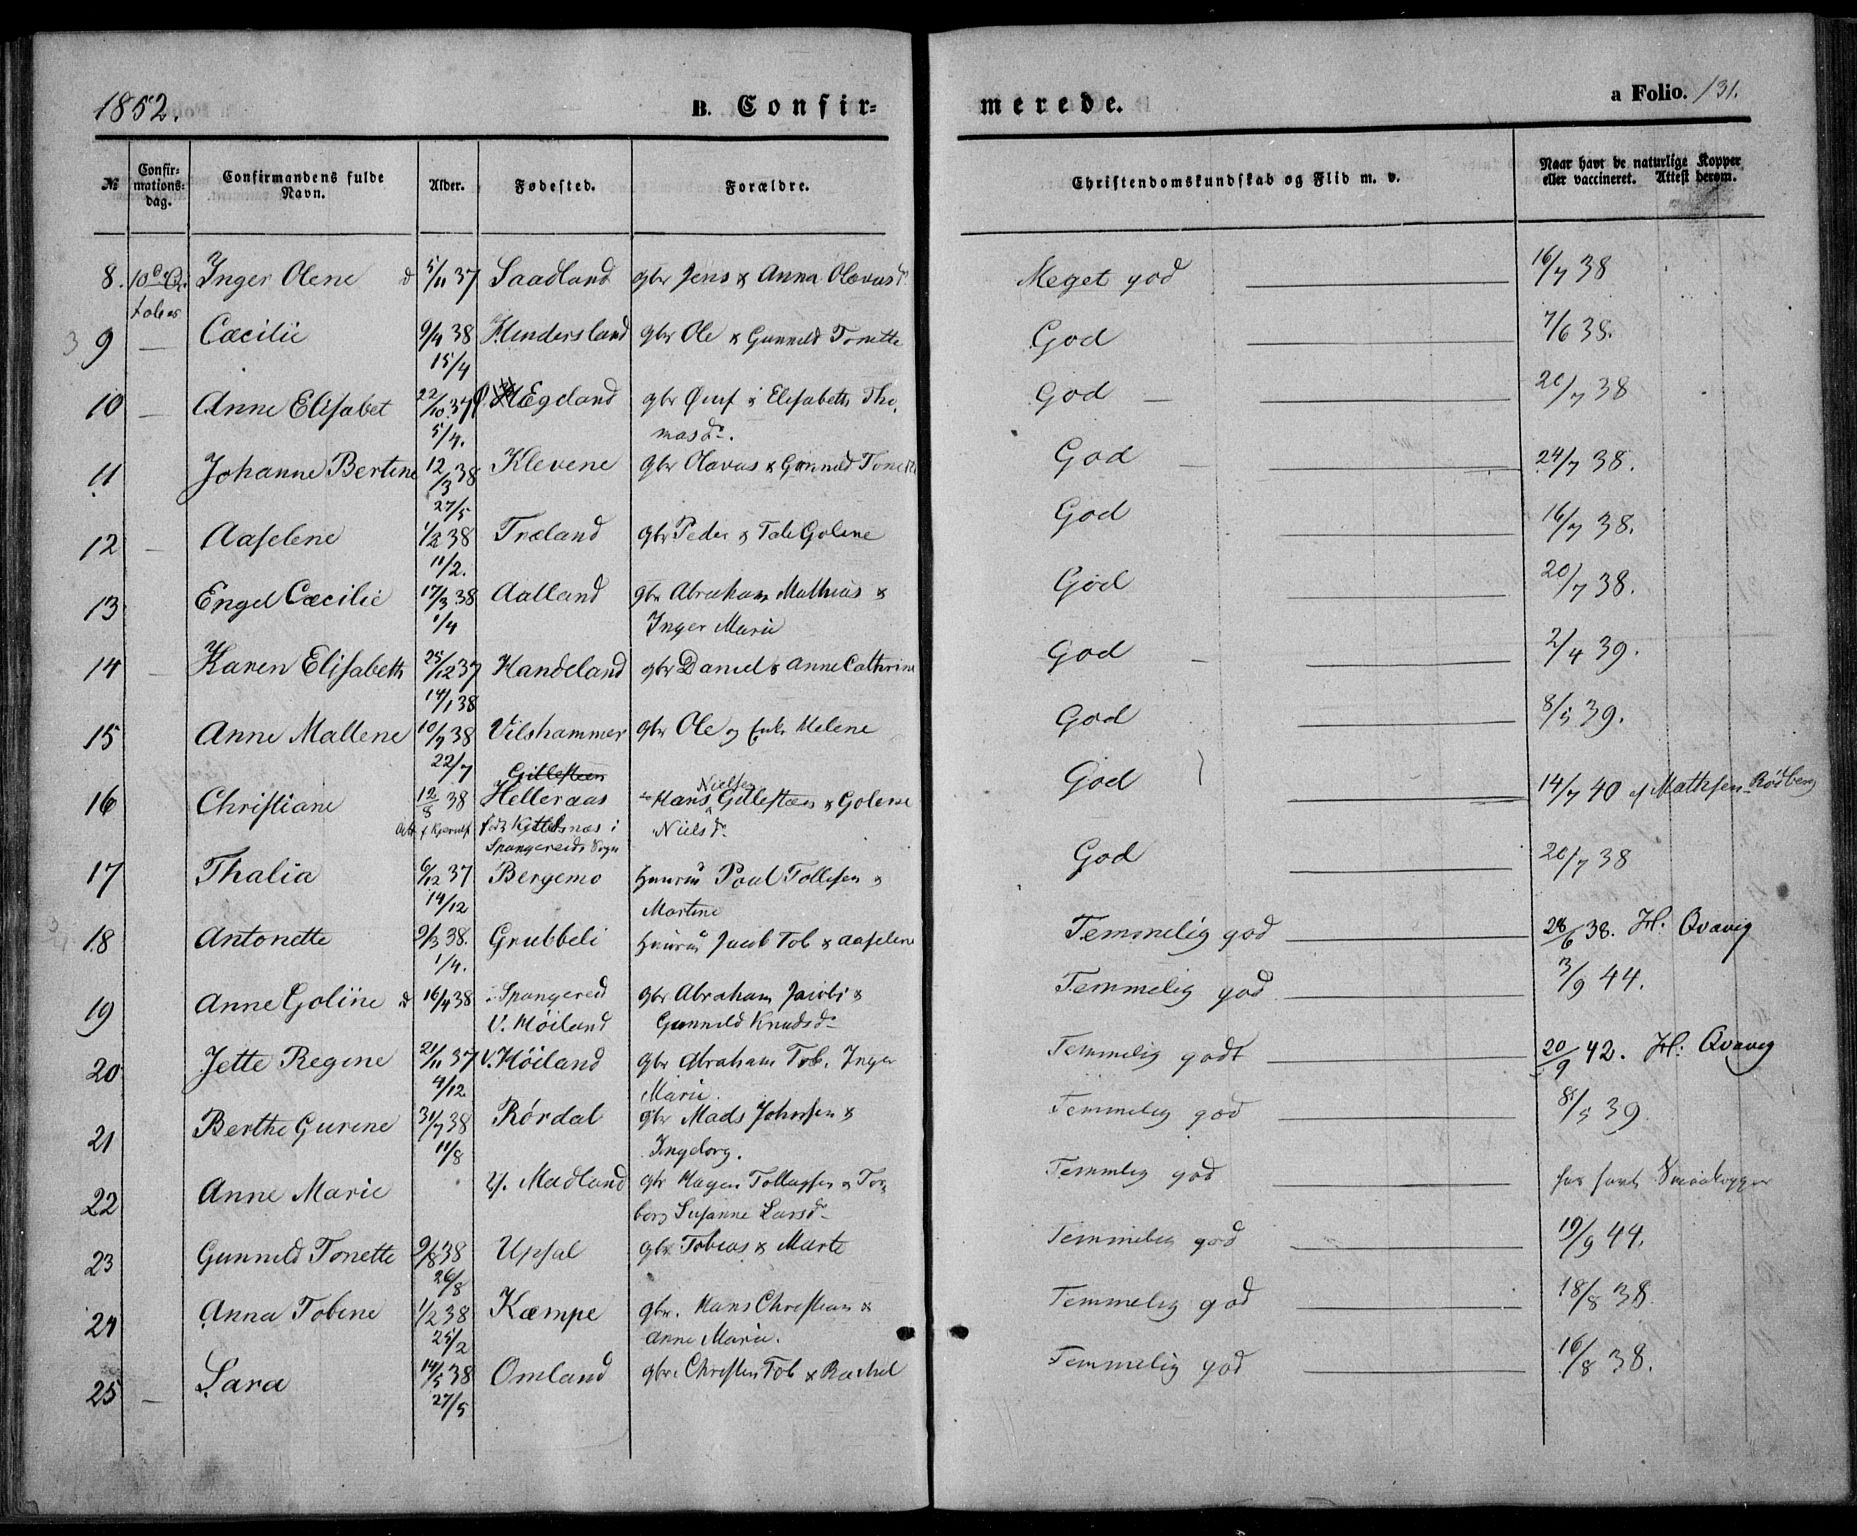 1852.
B. Confir=
merede.
a Folio. 131.
№
Confir-
mations-
dag.
Confirmandens fulde
Navn.
Alder.
Fødested.
Forældre.
Christendomskundskab og Flid m. v.
Naar havt de naturlige Kopper
eller vaccineret. Attest derom.
8. Inger Olene d 5/11 37 Saadland gbr Jens & Anna Olavusd. Meget god 16/7 38
9 — Cæcilie 9/4 38 Hindersland gbr Ole & Gunnild Tonette God 7/6 38.
15/4
10 — Anne Elisabet 22/10 37 Ø. Hægeland gbr & Elisabeth Tho- God — 20/7 38
5/4. masd.
11 Johanne Bertine 12/3 38 Klevene gbr Olavus & Gunnild Tonette God — 24/7 38.
27/5
12 — Aaselene 1/2 38 Træland gbr Peder & Tale Golene God 16/7 38.
11/2.
13 Engel Cæcilie 17/3 38 Aalland gbr Abraham Mathias & God 20/7 38.
1/4 Inger Marie
14 — Karen Elisabeth 25/12 37 Handeland gbr Daniel & Anne Cathrine God — 2/4 39.
14/1 38
15 Anne Mallene 10/7 38 Vilshammer gbr Ole og Helene God 8/5 39.
22/7 Gitlesteen Nielsen
16 Christiane 12/8 38 Helleraas Hans Gitlesteen & Golene God 14/7 40 af Mathsen Rødberg
født Kittelsnæs i Nielsd.
Spangereids Sogn
17 Thalia 6/12 37 Bergemo Poul Tollefsen & God 20/7 38
14/12 Martine
18 Antonette 9/3 38. Grubbeli Jacob Tob & Aaselene Temmelig god 28/6 38. H. Qvavig
1/4.
19 Anne Goline d 16/4 38 i Spangereid gbr Abraham Jacobs & Temmelig god 3/9 44.
V. Høiland Gunnild Knudsd.
20 Jette Regine 21/11 37 V. Høiland gbr Abraham Tob. Inger Temmelig godt 20/9 42. H: Qvavig
4/12 Marie.
21 Berthe Gurine 31/7 38 Rørdal gbr Mads Johnsen & Temmelig god 8/5 39.
11/8 Ingeborg.
22 Anne Marie Y. Madland gbr Hagen Tollagsen & Tor- Temmelig god har havt Smaakopper
borg Susanne Larsd.
23 Gunnild Tonette 9/8 38 Upsal gbr Tobias & Marte Temmelig god 19/9 44.
26/8
24 Anna Tobine 1/2 38 Kæmpe gbr. Hans Christian & Temmelig god 18/8 38
25/2 Anne Marie.
25 — Sara 14/5 38 Omland gbr. Christen Tob & Rachel Temmelig god 16/8 38.
27/5